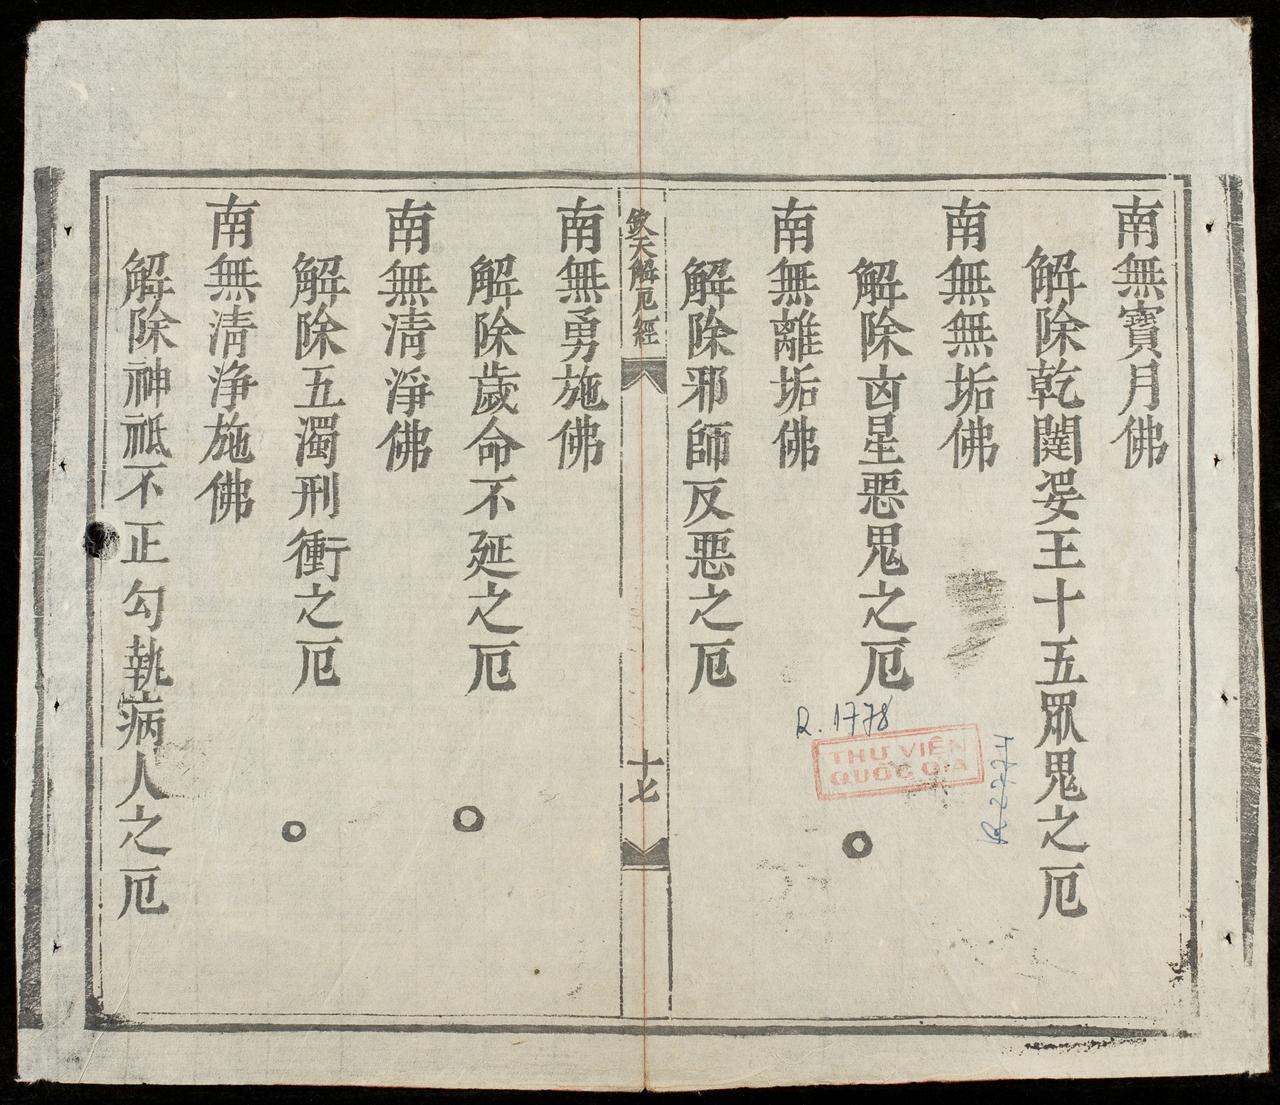 南無寶月佛
解除乾闥婆王十五眾鬼之厄
南無無垢佛
解除凶星惡鬼之厄
南無離垢佛
解除邪師反惡之厄
欽天解厄經
十七
南無勇施佛
解除歲命不延之厄
南無清淨佛
解除五濁刑衝之厄
南無清淨施佛
解除神祗不正勾執病人之厄
R. 1778
THƯ VIÊN
QUỐC GIA
R 22274